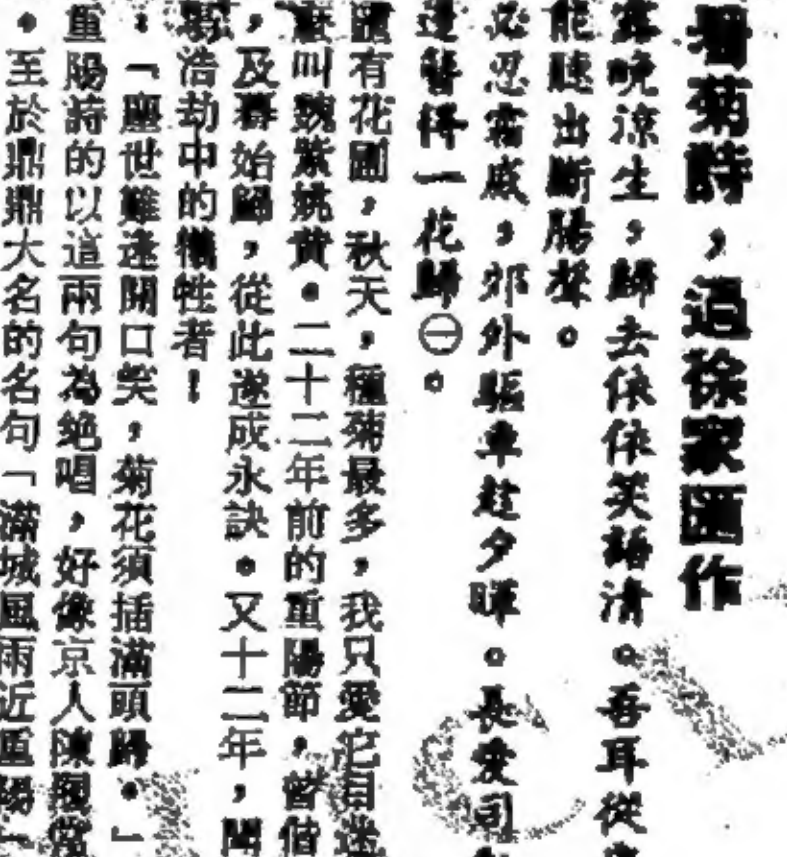 菊詩，過徐家匯作
露晚涼生，歸去依依笑語清。吾耳從
能聽出斷腸聲。
必忍霜威，郊外驅車趁夕暉。長愛司
逢醫得一花歸㊀。
有花園，秋天，種菊最多，我只愛它目迷
麼叫魏紫姚黃。二十二年前的重陽節，曾偕
，及暮始歸，從此遂成永訣。又十二年，聞
浩劫中的犧牲者！
：「塵世難逢開口笑，菊花須插滿頭歸。」
重陽詩的以這兩句為絶唱，好像京人陳
。至於鼎鼎大名的名句「滿城風雨近重陽」